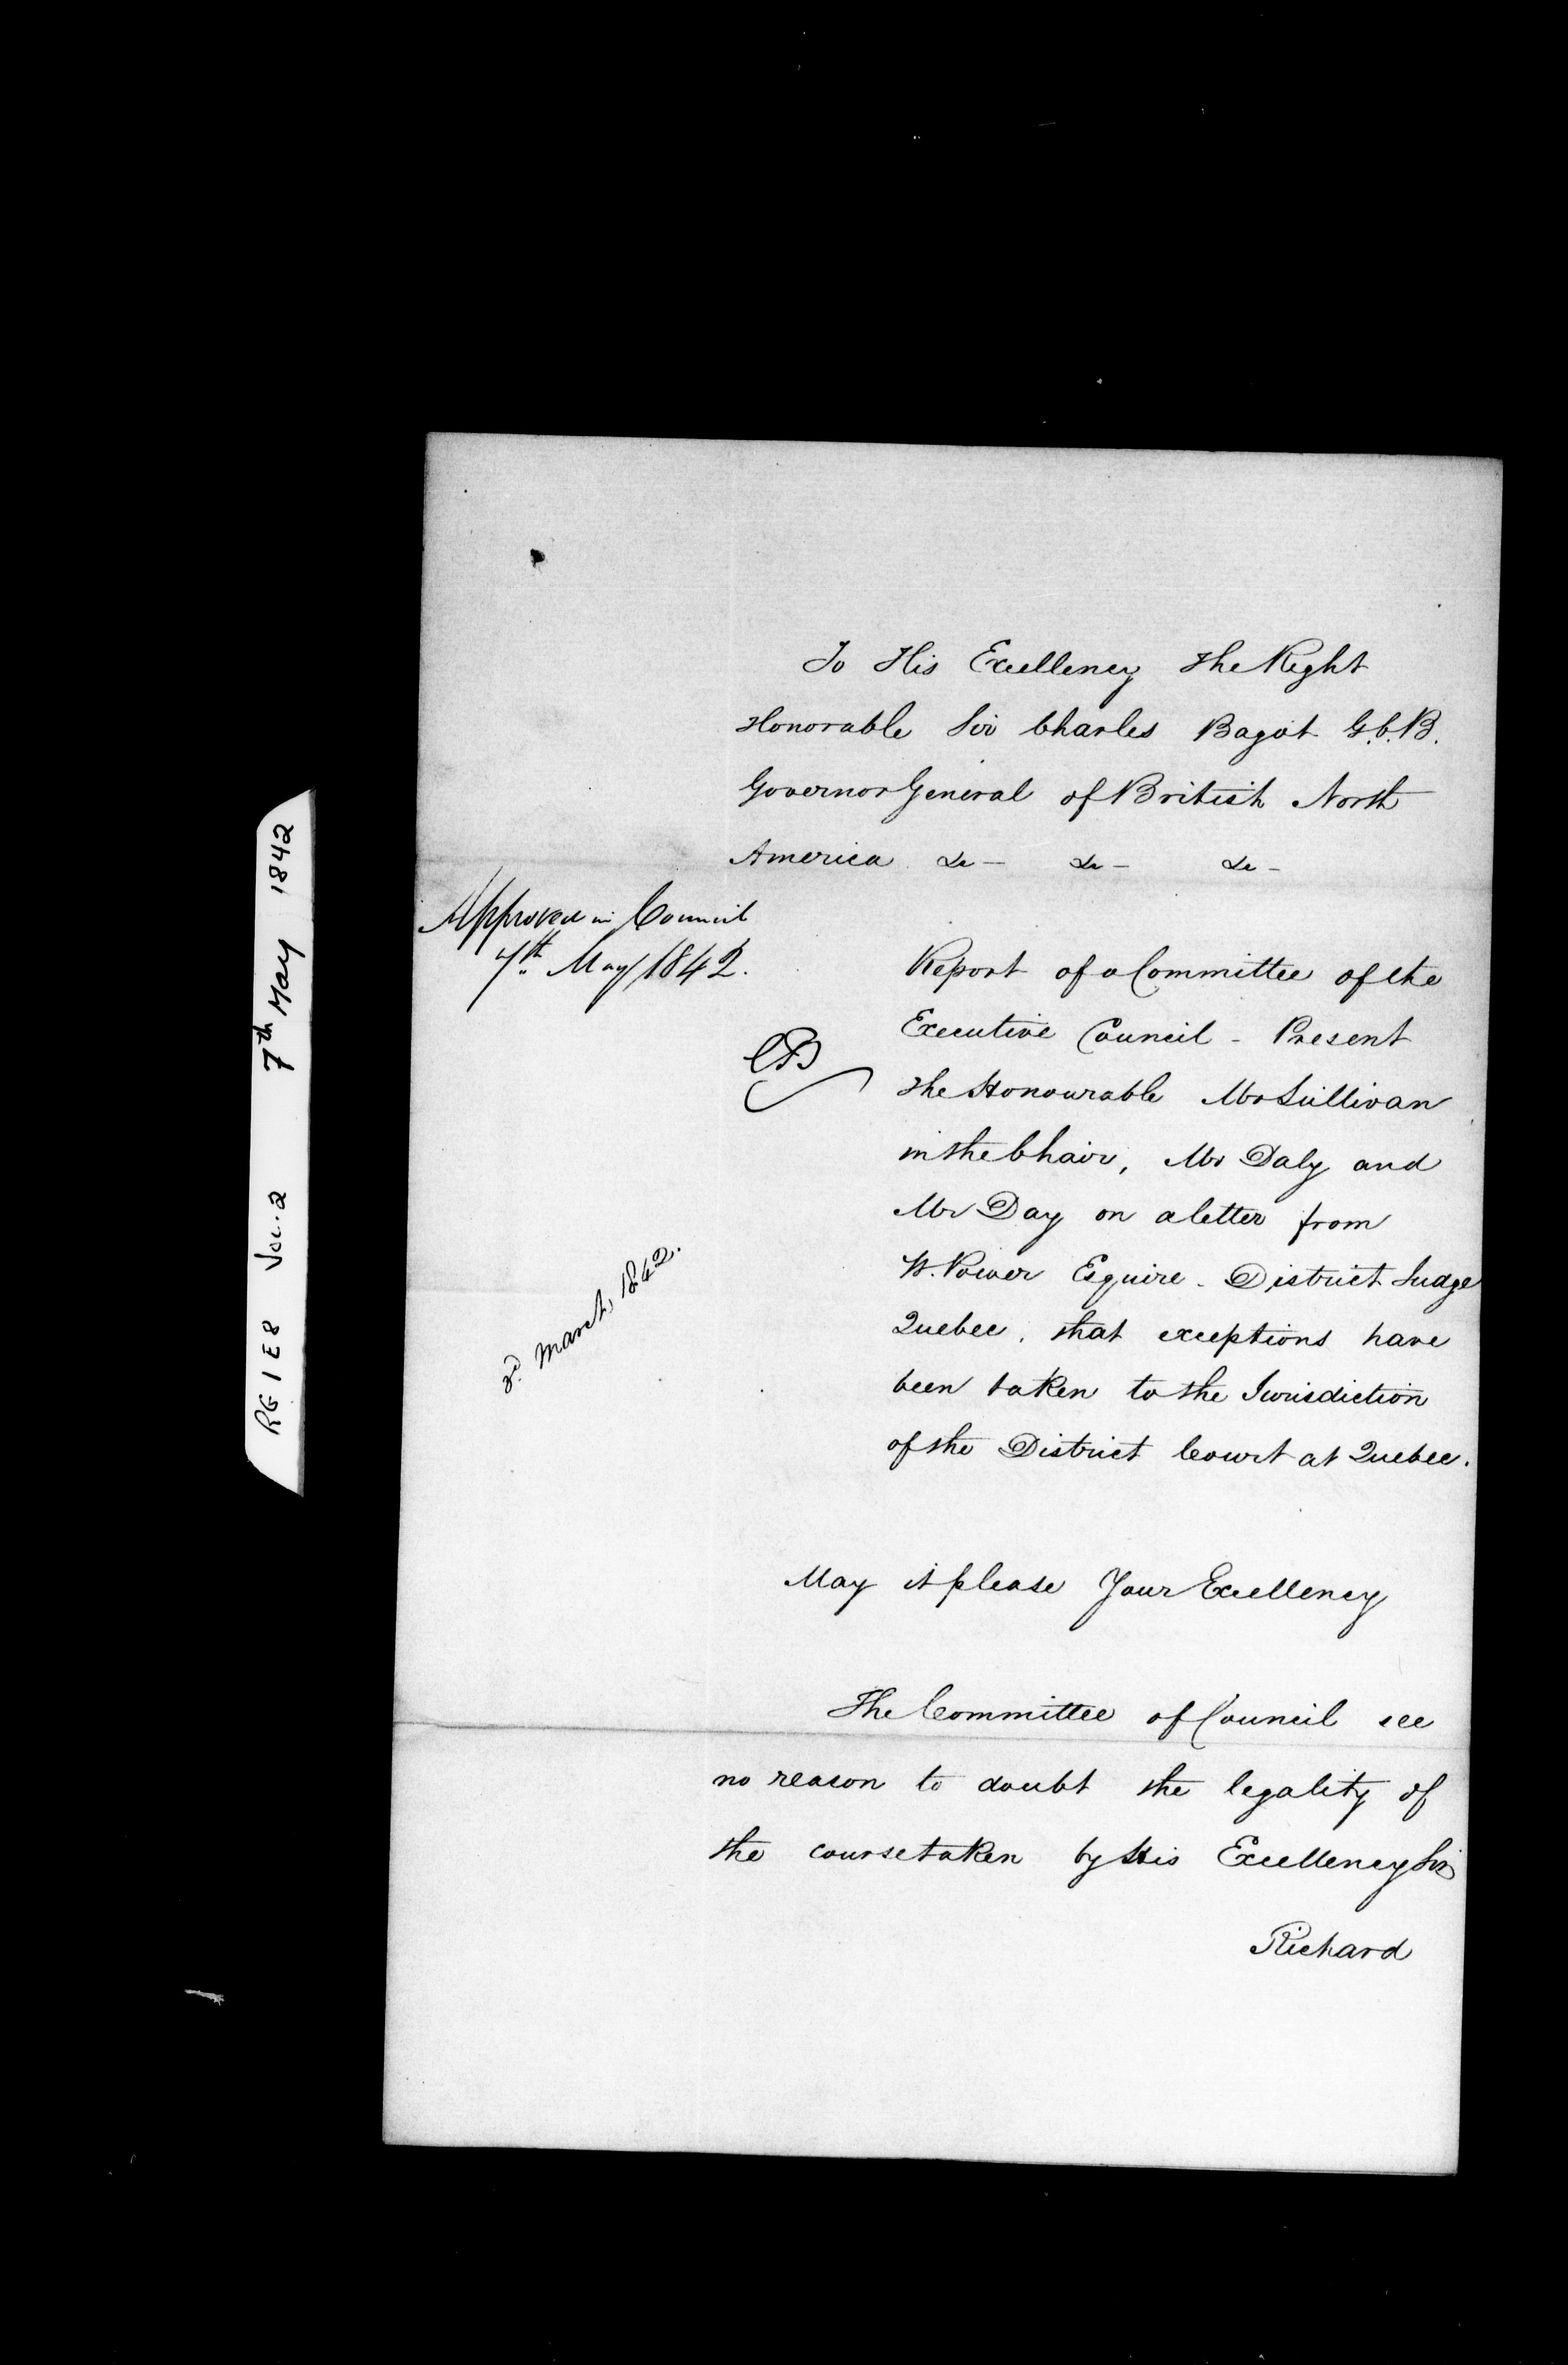 To His Excellency The Right
Honorable Sir Charles Bagot G.C.B.
Governor General of British North
America &c - &c - &c -
Approved in Council
7th May 1842.
CB
Report of a Committee of the
Executive Council - Present
The Honourable Mr Sullivan
in the Chair, Mr Daly and
Mr Day on a letter from
W. Power Esquire - District Judge
Quebec, that exceptions have
been taken to the Jurisdiction
of the District Court at Quebec.
3d March, 1842.
May it please Your Excellency
The Committee of Council see
no reason to doubt the legality of
the course taken by His Excellency Sir
Richard
RG 1 E 8 Vol. 2 7th May 1842